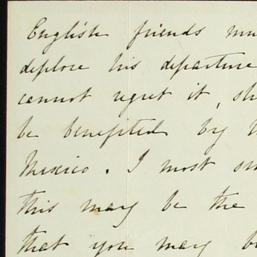 English friends mu
deplore his departure
cannot regret it, sh
be benefited by
Mexico. I most sin
this may be the
that you may be